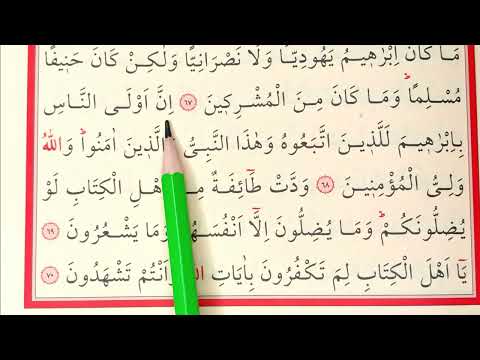 مَا كَانَ اِبْرٰه۪يمُ يَهُودِيًّا وَلَا نَصْرَانِيًّا وَلٰكِنْ كَانَ حَن۪يفًا
مُسْلِمًاۜ وَمَا كَانَ مِنَ الْمُشْرِك۪ينَ ٦٧ اِنَّ اَوْلَى النَّاسِ
بِاِبْرٰه۪يمَ لَلَّذ۪ينَ اتَّبَعُوهُ وَهٰذَا النَّبِيُّ الَّذ۪ينَ اٰمَنُواۜ وَاللّٰهُ
وَلِيُّ الْمُؤْمِن۪ينَ ٦٨ وَدَّتْ طَٓائِفَةٌ الْكِتَابِ لَوْ
يُضِلُّونَكُمْۜ وَمَا يُضِلُّونَ اِلَّٓا وَمَا يَشْعُرُونَ ٦٩
يَٓا اَهْلَ الْكِتَابِ لِمَ تَكْفُرُونَ بِاٰيَاتِ تَشْهَدُونَ ٧٠